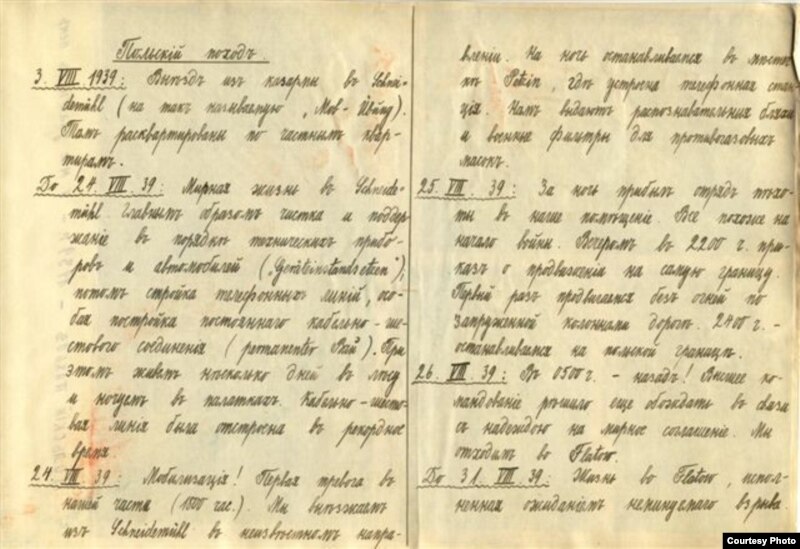 Польскій походъ.
3. VIII 1939: Выѣздъ изъ казармы въ Schnei-
demühl (на такъ называемую „Mob-Übung).
Тамъ расквартированы по частнымъ квар-
тирамъ.
До 24. VIII. 39: Мирная жизнь въ Schneide-
mühl. Главнымъ образомъ чистка и поддер
жаніе въ порядкѣ техническихъ прибо-
ровъ и автомобилей („Geräteinstandsetzen"),
потомъ стройка телефонныхъ линій, осо-
бая постройка постояннаго кабельно-ше-
стового соединенія (permanenter Bau). При
этомъ живемъ нѣсколько дней въ лѣсу
и ночуемъ въ палаткахъ. Кабельно-шесто-
вая линія была отстроена въ рекордное
время
24. VIII. 39: Мобилизація! Первая тревога въ
нашей части (1500 час.). Мы выѣзжаемъ
изъ Schneidemühl въ неизвѣстномъ напра-
вленіи. На ночь останавливаемся въ мѣстеч
кѣ Petzin, гдѣ устроена телефонная стан
ція. Намъ выдаютъ распознавательныя бляхи
и военные фильтры для противогазовыхъ
масокъ.
25. VIII. 39: За ночь прибылъ отрядъ пѣхо-
ты въ наше помѣщеніе. Все похоже на
начало войны. Вечеромъ въ 2200 ч. при-
казъ о продвиженіи на самую границу.
Первый разъ продвигаемся безъ огней по
запруженной колоннами дорогѣ. 2400 ч. -
останавливаемся на польской границѣ.
26. VIII. 39: Въ 0500 ч. - назадъ! Высшее ко-
мандованіе рѣшило еще обождать въ связи
съ надеждою на мирное соглашеніе. Мы
отходимъ во Flatow.
До 31. VIII. 39: Жизнь во Flatow, испол-
ненная ожиданіемъ неминуемаго взрыва.
Courtesy Photo